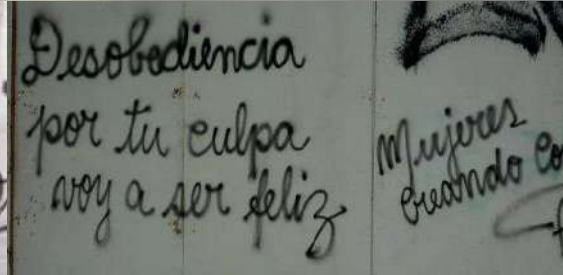 Desobediencia
por tu culpa
voy a ser feliz
Mujeres
creando